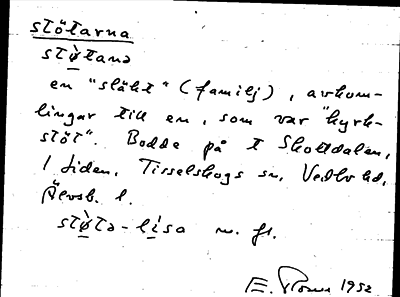 stötarna
stø̀tanə
en "släkt" (familj), avkom-
lingar till en, som var "kyrk-
stöt". Bodde på t Skottdalen,
l liden, Tisselskogs sn, Vedbo hd,
Älvsb. l.
stø̀tə-lisa m. fl.
E. 1952